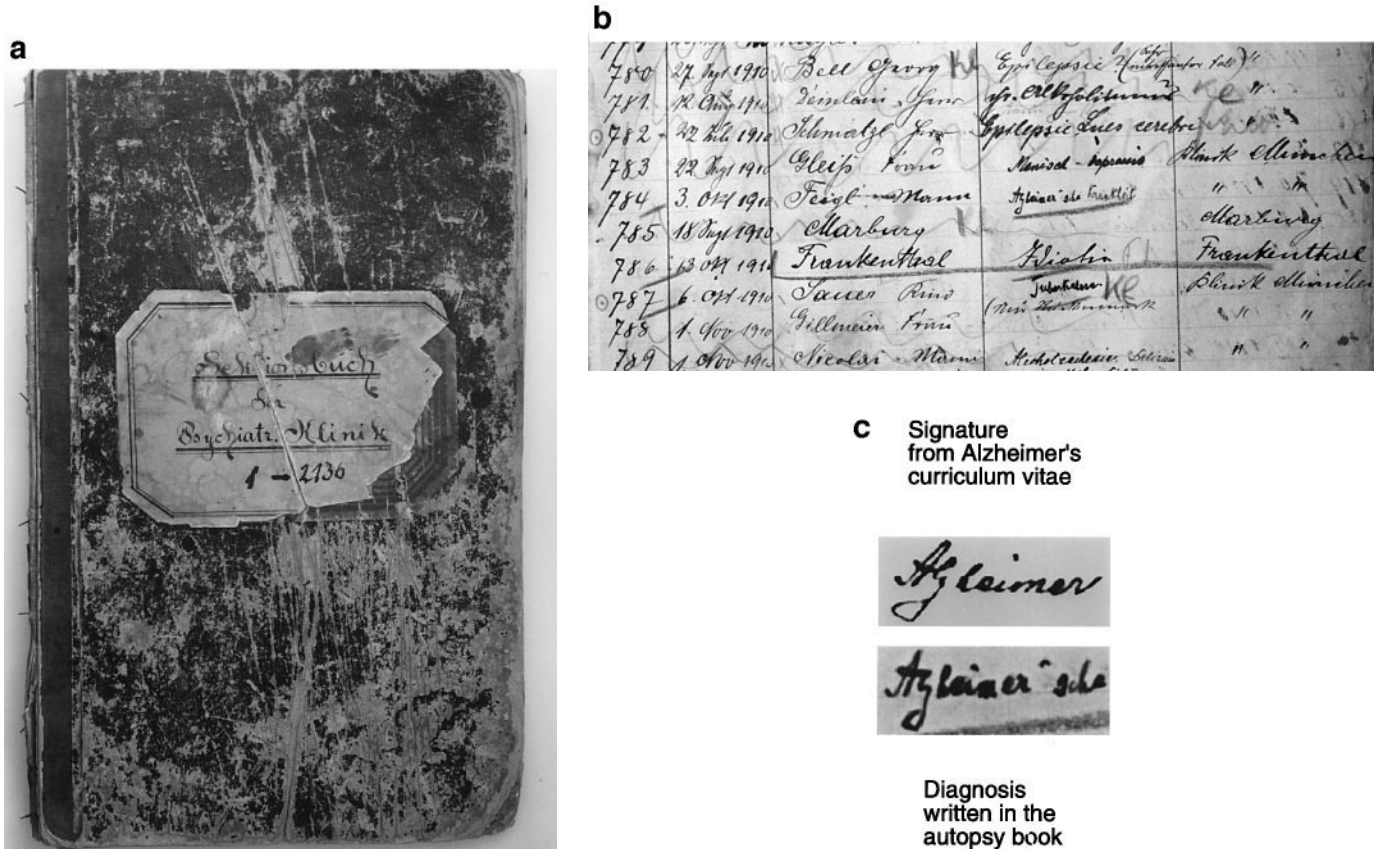 a
Sektionsbuch
der
Psychiatr. Klinik
1 – 2136
b
780 27 Sept 1910 Bell Georg Ke Epilepsie "
781 12 Aug 1910 chr. Alkoholismus Ke "
782 22 1910 Schmatzl Epilepsie Lues cerebri "
783 22 Sept 1910 Gleiß Frau Manisch - depressiv Klinik München
784 3. Okt 1910 Feigl - Mann Alzheimer'sche Krankheit " "
785 18 Sept 1910 Marburg Ke Marburg
786 13 Okt 1910 Frankenthal Idiotin Frankenthal
787 6. Okt 1910 Sauer Ke Klinik München
788 1. Nov 1910 Gillmeier Frau " "
789 1 Nov 1910 Nicolai - Mann " "
c Signature
from Alzheimer's
curriculum vitae
Alzheimer
Alzheimer'sche
Diagnosis
written in the
autopsy book